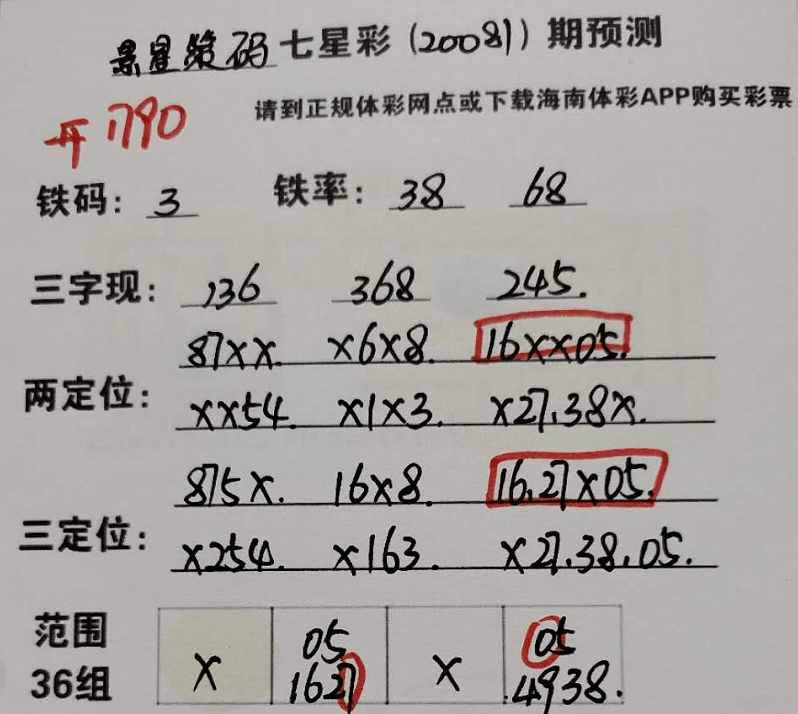 景星策码七星彩(20081)期预测
请到正规体彩网点或下载海南体彩APP购买彩票
开1790
铁码: 3 铁率: 38 68
三字现: 136 368 245.
87XX. X6X8. 16XX05.
两定位:
XX54. X1X3. X27.38X.
875X. 16X8. 16.27X05.
三定位:
X254. X163. X27.38.05.
范围 05 05
36组 X 1627 X 4938.